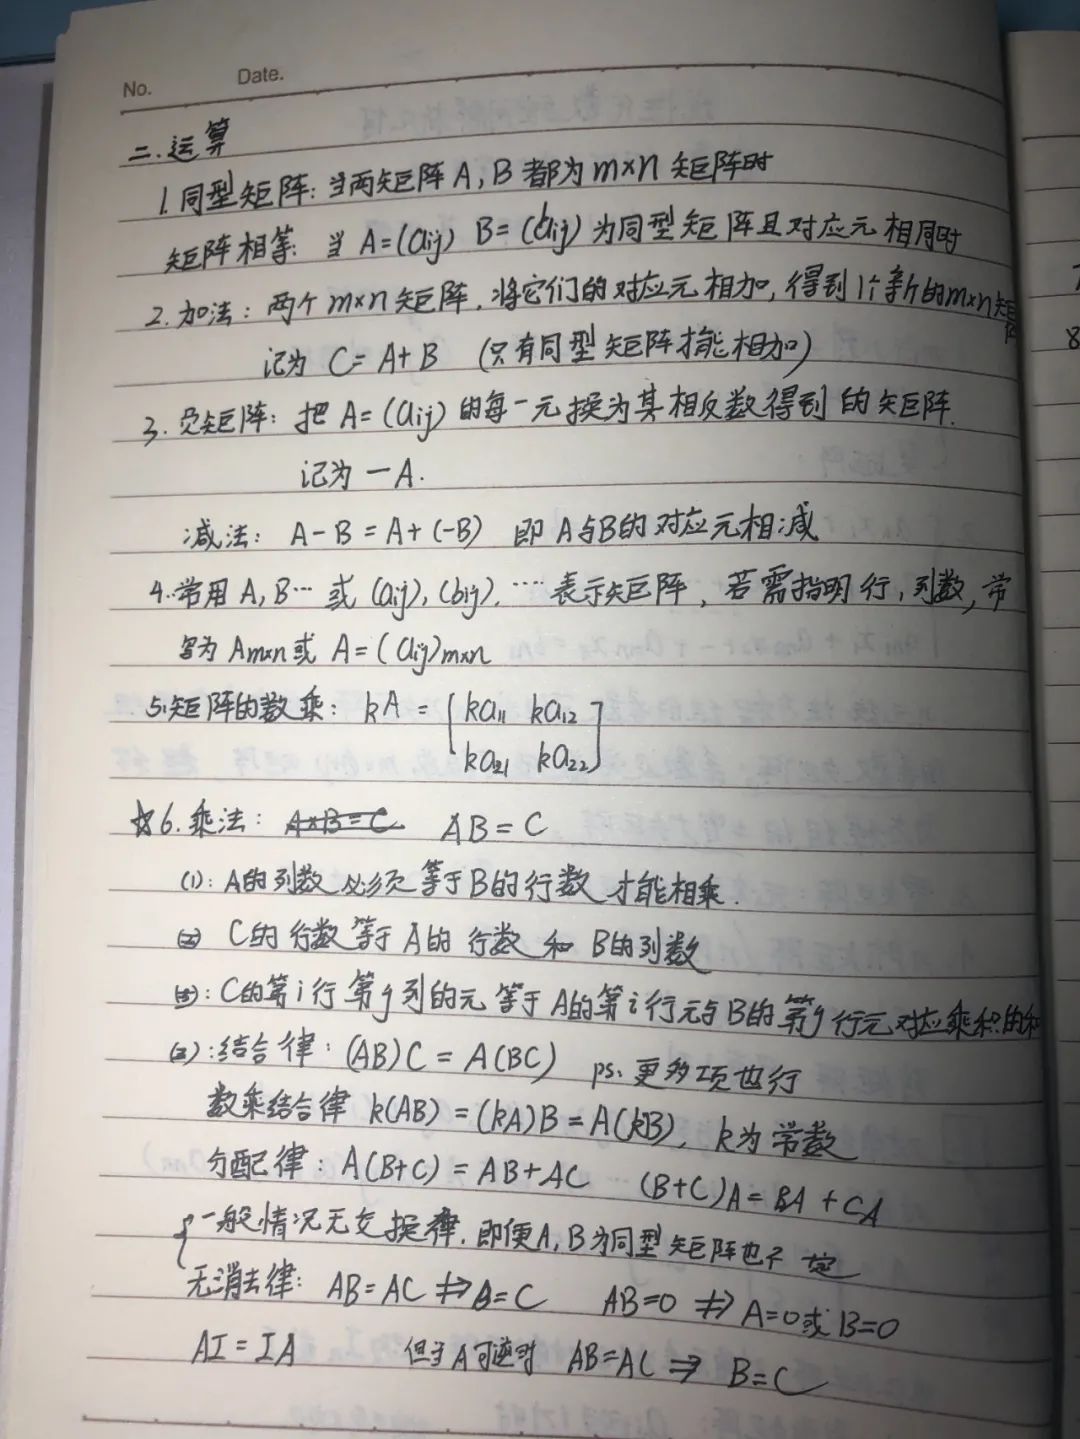 No. Date.
二.运算
1.同型矩阵:当两矩阵A,B都为m×n矩阵时
矩阵相等:当 A=(aij) B=(bij)为同型矩阵且对应元相同时
2.加法:两个m×n矩阵.将它们的对应元相加,得到1个新的m×n矩阵
记为 C=A+B (只有同型矩阵才能相加)
3.负矩阵:把A=(aij)的每一元换为其相反数得到的矩阵.
记为 -A.
减法: A-B=A+(-B) 即A与B的对应元相减
4.常用A,B…或(aij),(bij).…表示矩阵,若需指明行,列数,常
写为Am×n或 A=(aij)m×n
5.矩阵的数乘: kA = [ka11 ka12
ka21 ka22]
☆6.乘法: A×B=C AB=C
(1):A的列数必须等于B的行数才能相乘.
(2) C的行数等于A的行数和B的列数
(3):C的第i行第j列的元等于A的第i行元与B的第j行元对应乘积的和
:结合律:(AB)C=A(BC) ps.更多项也行
数乘结合律 k(AB)=(kA)B=A(kB), k为常数
分配律:A(B+C)=AB+AC (B+C)A=BA+CA
{一般情况无交换律.即便A,B为同型矩阵也不一定
无消去律: AB=AC ⇏ B=C AB=0 ⇏ A=0或B=0
AI=IA 但当A可逆时 AB=AC ⇒ B=C
8